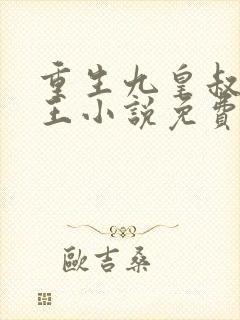 重生九皇叔
王小說免費
歐吉桑